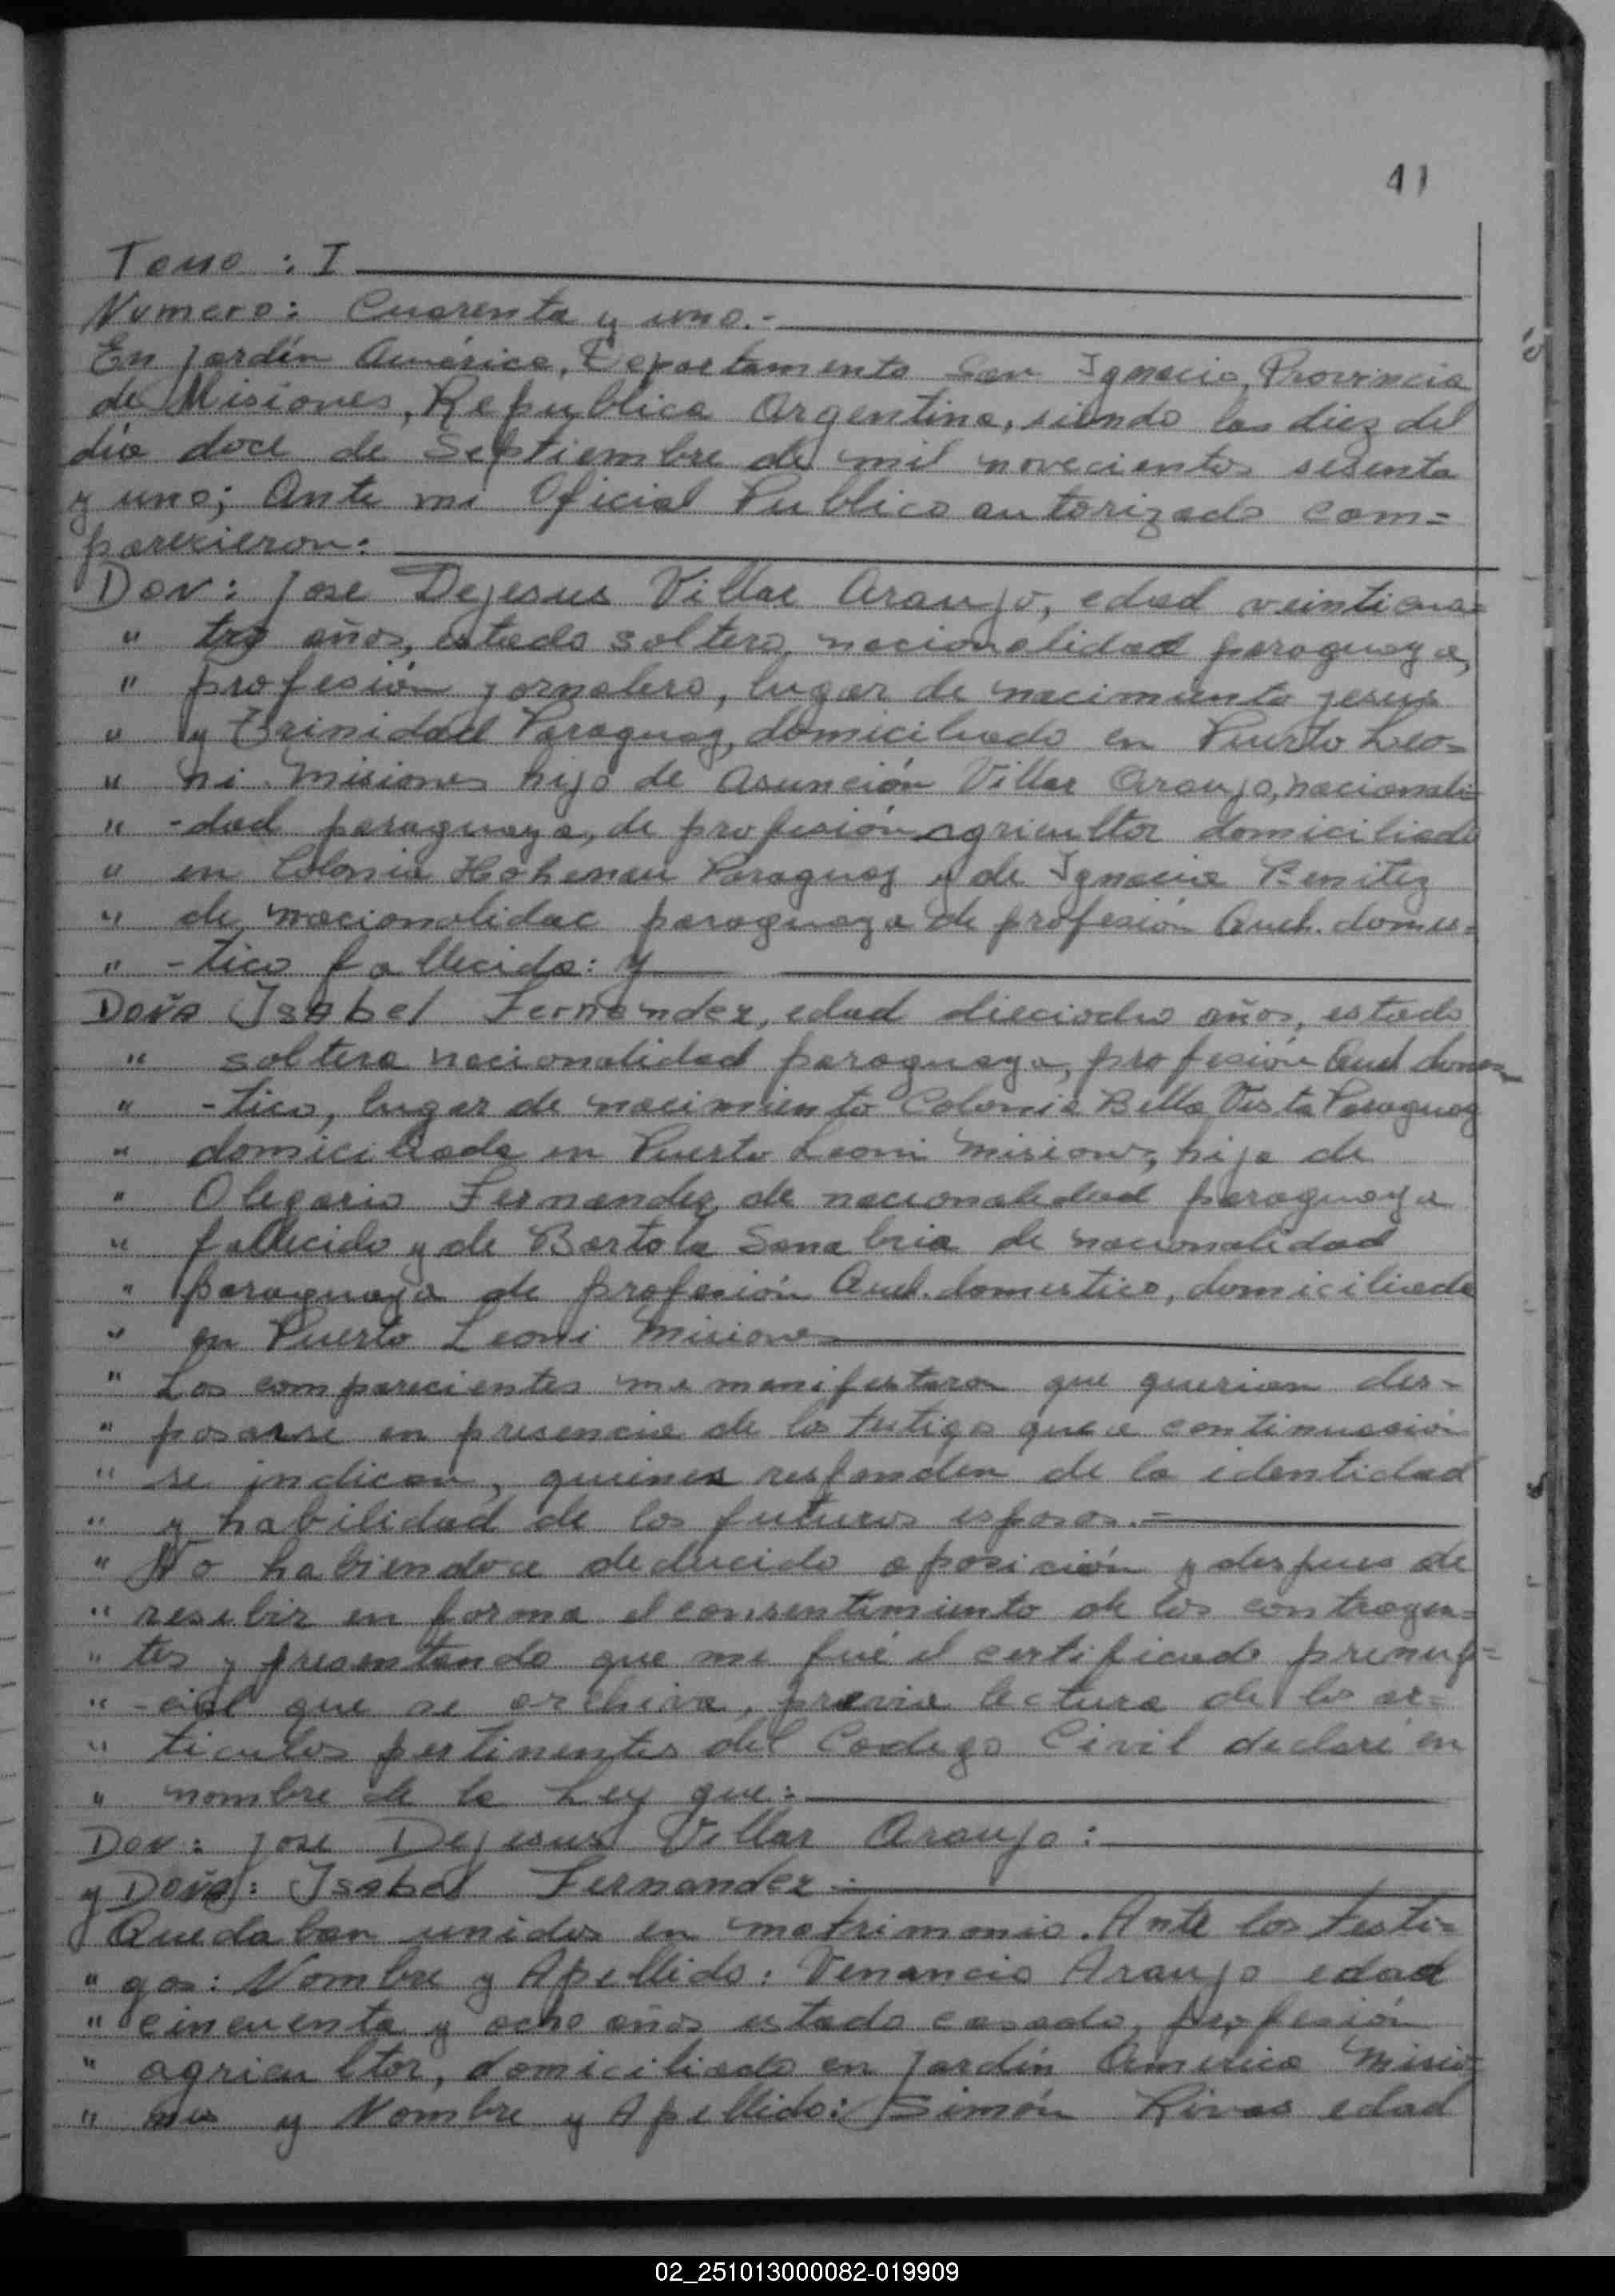 41
Tomo : I
Numero: Cuarenta y uno.-
En Jardín América, Departamento San Ignacio, Provincia
de Misiones, Republica Argentina, siendo las diez del
día doce de Septiembre de mil novecientos sesenta
y uno; Ante mi Oficial Publico autorizado com=
parecieron:
Don: Jose Dejesus Villar Araujo, edad veinticua=
" tro años, estado soltero nacionalidad paraguaya,
" profesión jornalero, lugar de nacimiento Jesus
" y Trinidad Paraguay, domiciliado en Puerto Leo=
" ni Misiones hijo de Asunción Villar Araujo, nacionali=
" -dad paraguaya, de profesión agricultor domiciliado
" en Colonia Hohenau Paraguay y de Ignacia Benitez
" de nacionalidac paraguaya de profesión Queh. domes=
" -tico fallecida: y
Doña Isabel Fernandez, edad dieciocho años, estado
" soltera nacionalidad paraguaya, profesión Queh domes
" -tico, lugar de nacimiento Colonia Bella Vista Paraguay
" domiciliada en Puerto Leoni Misiones, hija de
" Olegario Fernandez de nacionalidad paraguaya
" fallecido y de Bartola Sanabria de nacionalidad
" paraguaya de profesión Queh. domestico, domiciliada
" en Puerto Leoni Misiones
" Los comparecientes me manifestaron que querian des-
" posarse en presencia de los testigos que a continuación
" se indican, quienes responden de la identidad
" y habilidad de los futuros esposos.-
" No habiendoce deducido oposición y despues de
" resebir en forma el consentimiento de los contrayen=
" tes y presentando que me fué el certificado prenup=
" -cial que se archiva, previa lectura de los ar=
" ticulos pertinentes del Codego Civil declaré en
" nombre de la Ley que:
Don: Jose Dejesus Villar Araujo:
y Doña: Isabel Fernandez-
Quedaban unidos en matrimonio. Ante los testi=
" gos: Nombre y Apellido: Venancio Araujo edad
" cincuenta y ocho años estado casado, profesión
" agricultor, domiciliado en Jardín America Misio=
" nes y Nombre y Apellido: Simón Rivas edad
02_251013000082-019909